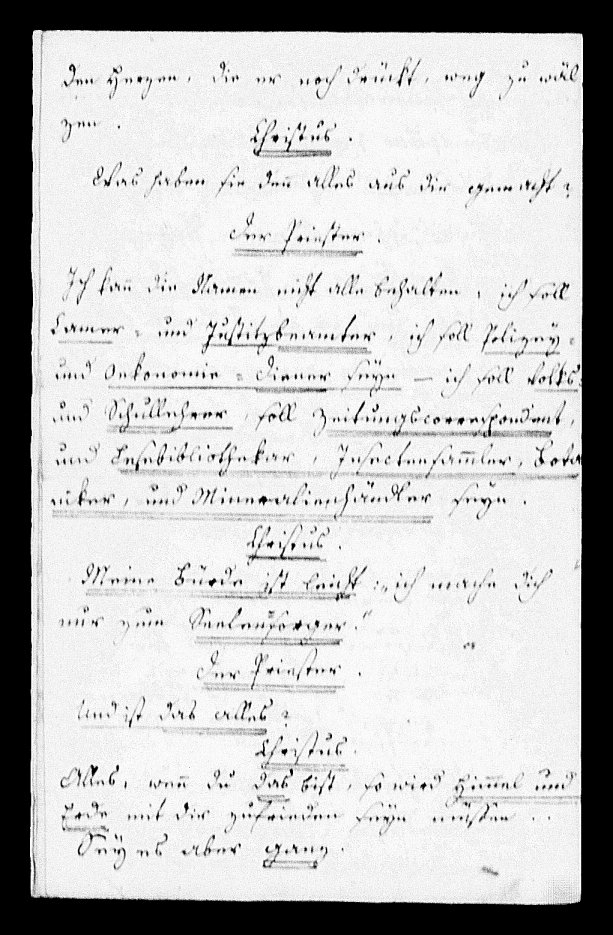 den Herzen, die er noch drückt, weg zu wäl-
zen.
Christus.
Was haben sie den̄ alles aus dir gemacht?
Der Priester.
Ich kan̄ die Namen nicht alle behalten, ich soll
Camer- und Justitzbeamter, ich soll Polizey-
und Oekonomie-Diener seyn — ich soll Volks-
und Schullehrer, soll Zeitungscorrespondent,
und Lesebibliothekar, Insectensam̄ler, Bota-
niker, und Mineralienhändler seyn.
Christus.
Meine Bürde ist leicht: „ich mache dich
nur zum Seelensorger!"
Der Priester.
Und ist das alles?
Christus.
Alles, wen̄ du das bist, so wird Him̄el und
Erde mit dir zufrieden seyn müssen..
Sey es aber ganz.